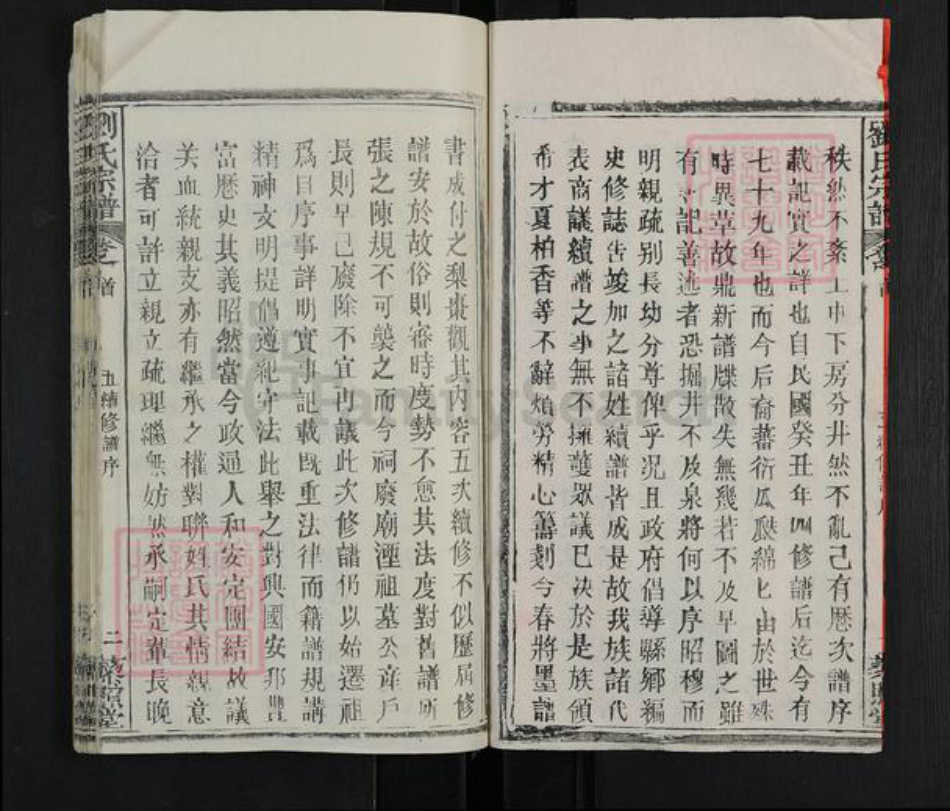 秩然不紊上中下房分井然不亂己有歷次譜序
載記實之詳也自民國癸丑年四修譜后迄今有
七十九年也而今后裔蕃衍瓜瓞綿匕由於世殊
時異革故鼎新譜牒散失無幾若不及早圖之雖
有記善述者恐掘井不及泉將何以序昭穆而
明親疏别長幼分尊俾乎况且政府倡導縣鄉編
史修誌告竣加之諸姓續譜皆成是故我族諸代
表商議續譜之事無不擁護眾議已决於是族領
希才夏柏香等不辭煩勞精心籌劃今春將墨譜
劉氏宗譜
書成付之梨棗觀其内容五次續修不似歷屆修
譜安於故俗則審時度勢不愈其法度對舊譜所
張之陳規不可襲之而今祠廢廟湮祖墓公產戶
長則早已廢除不宜再議此次修譜仍以始遷祖
爲目序事詳明實事記載既重法律而籍譜規講
精神文明提倡遵紀守法此舉之對興國安邦豐
富歷史其義昭然當今政通人和安定團結故議
关血統親支亦有繼承之權對聯姓氏其情親意
洽者可許立親立疏理繼無妨然承嗣定輩長晚
劉氏宗譜 卷之首 五續修譜序 二